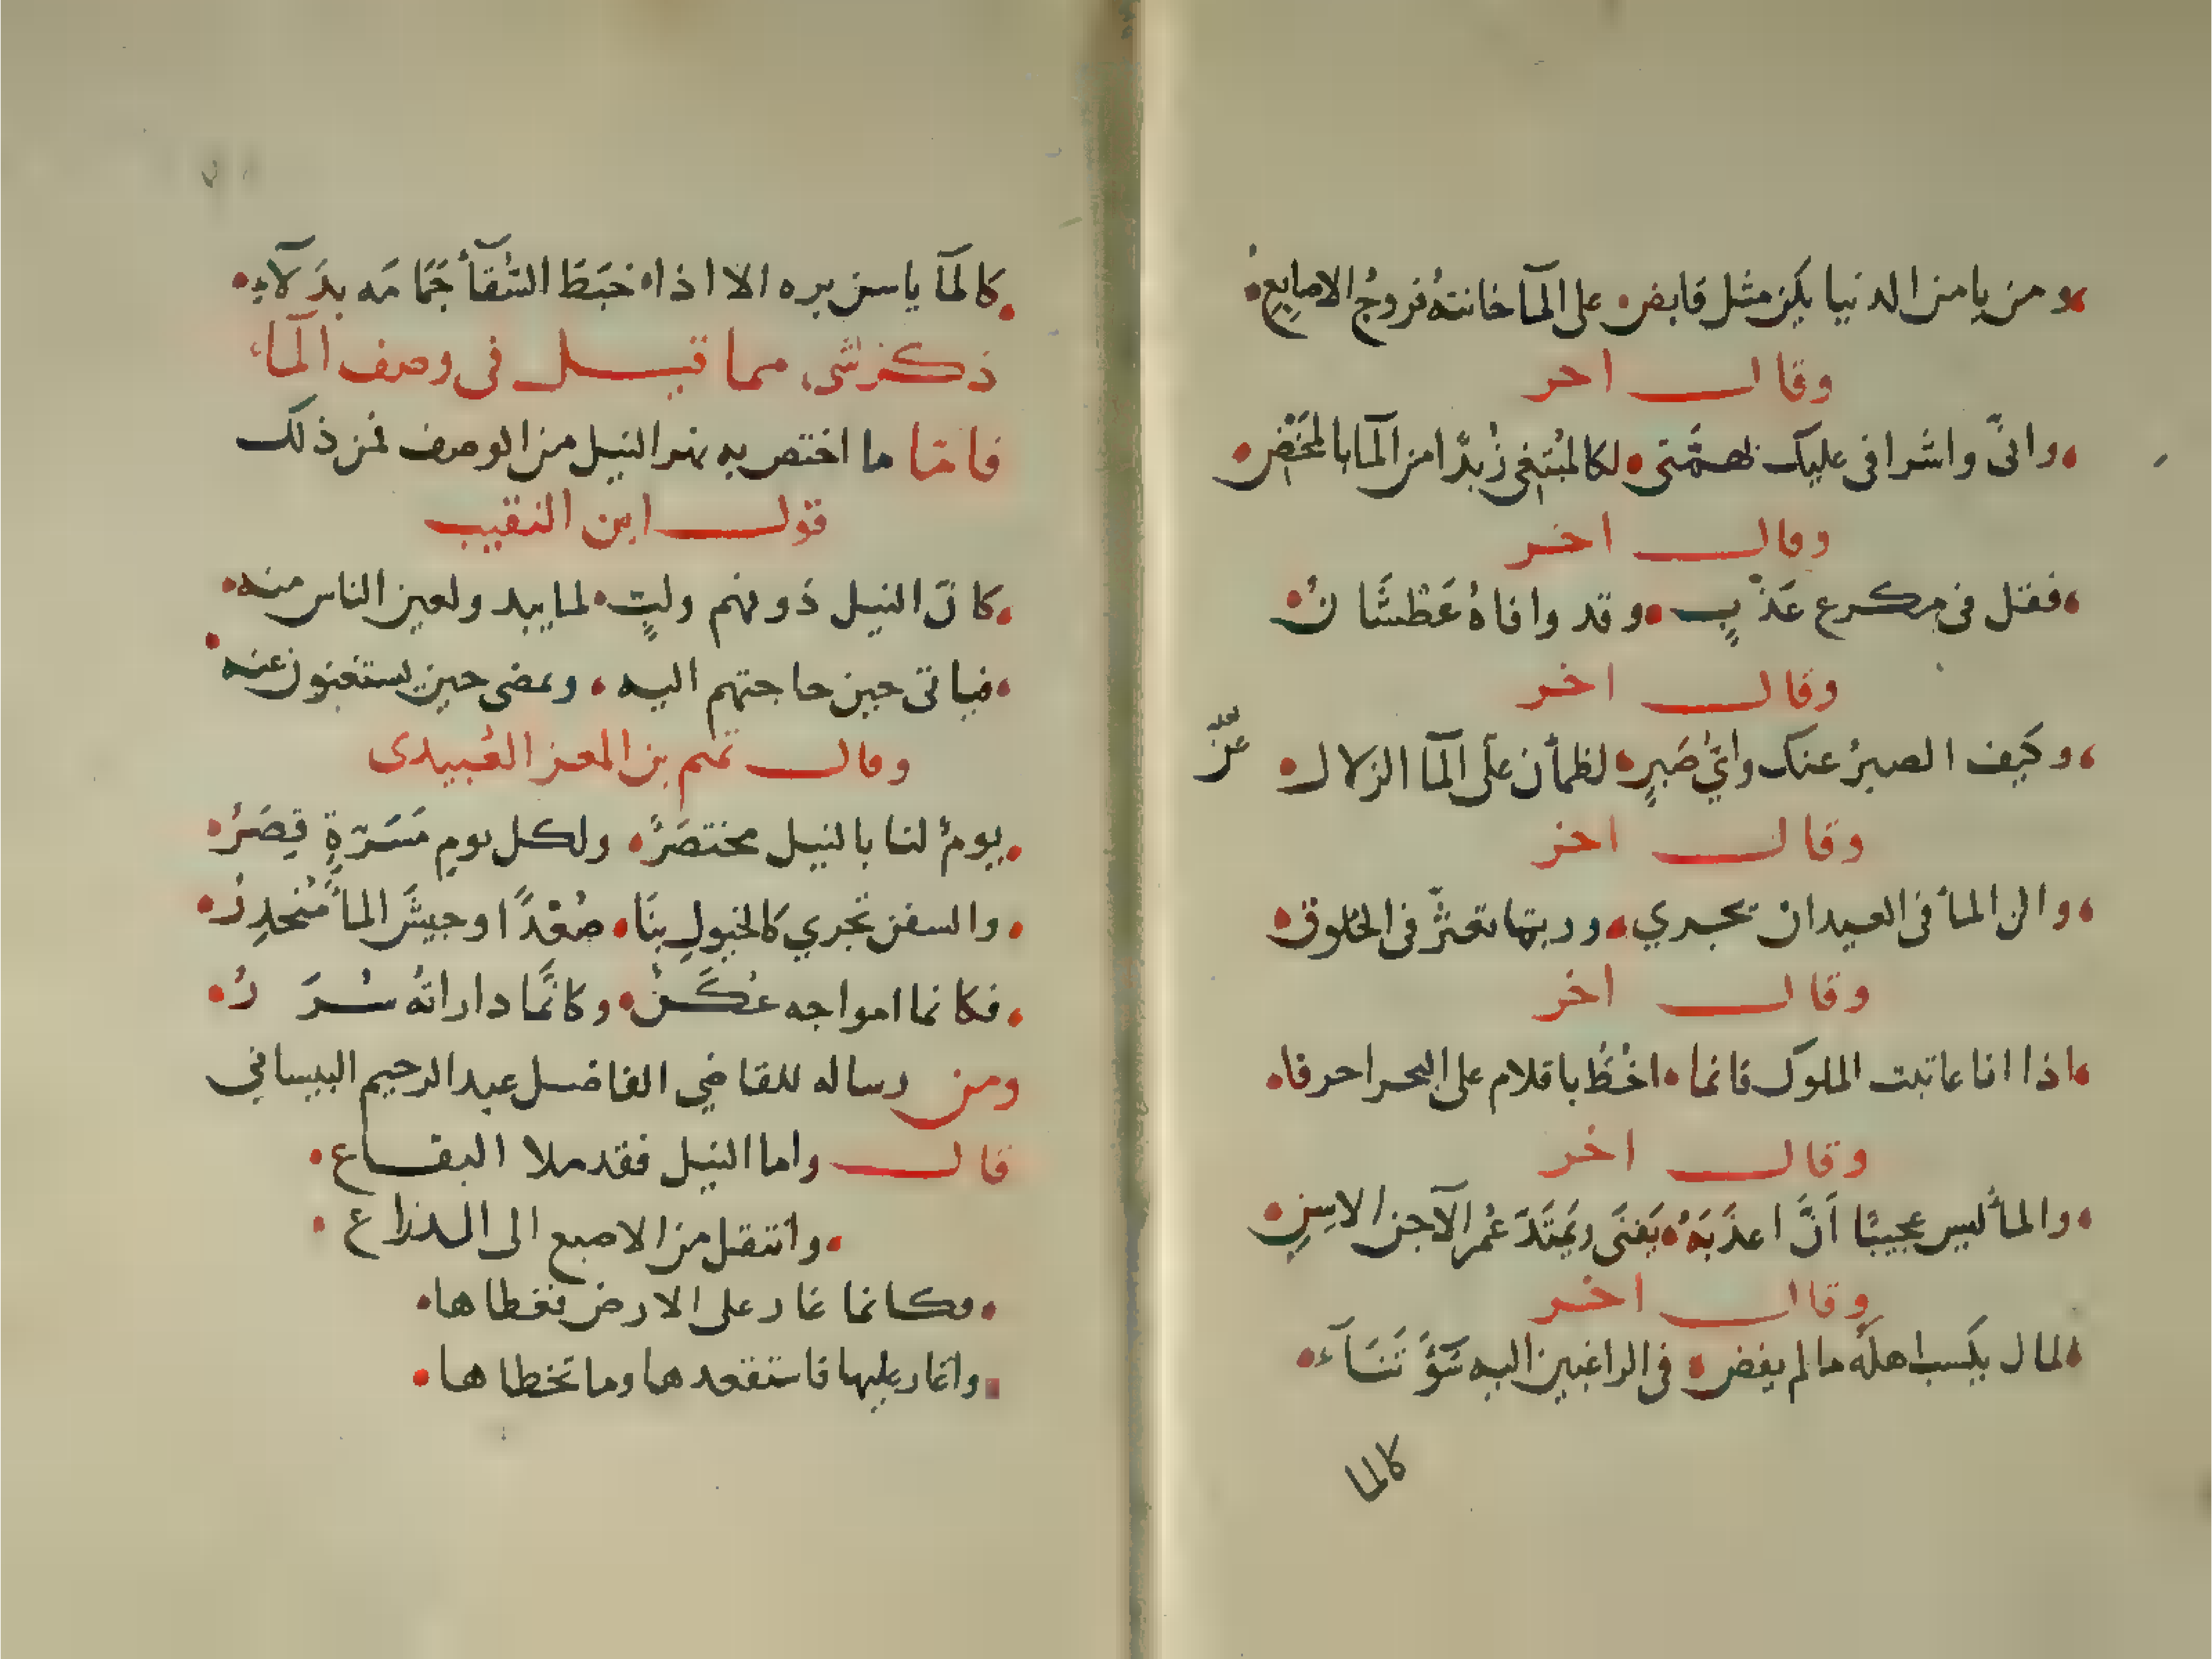 ومن يامن الدنيا يكن مثل قابض على المآ خانته فروج الاصابع
وقال احر
وانى واشرافى عليك بهمّتى لكالمبتغى زُبدًا من المآ بالمخض
وقال اخر
فقل فى مكرع عَذبٍ وقد وافاهُ عَطشَانُ
وقال اخر
وكيف الصبرُ عنك وايّ صَبرٍ لظمأن على المآ الزلال
عزّ
وقال اخر
والن المأ فى العيدان تجري وربتما تعثّر فى الحلوق
وقال اخر
اذا انا عاتبت الملوك فانما اخُطُّ باقلام على البحر احرفا
وقال اخر
والمأ ليس عجيبًا اَنَّ اعذَبَهُ يَفنَى ويَمتَدّ عُمر الآجن الاسِنِ
وقال اخر
المال يكسب اهله ما لم يفض فى الراغبين اليه سَوَّ ثَنَآء
كالما
كالمآ ياسن بيره الا اذا خبَطَ السُّقآأ جَمَامَه بدَلآءِ
ذكر شى مما قيل فى وصف المآء
فامّا ما اختص به نهر النيل من الوصف فمن ذلك
قول ابن النقيب
كانّ النيل ذو فهم ولبٍ لما يبد ولعين الناس منه
فياتى حين حاجتهم اليه ويمضى حين يستغنون عنه
وقال تميم بن المعز العُبيدى
يومٌ لنا بالنيل مختصَرُ ولكل يوم مَسَرّةٍ قِصَرُ
والسفن تجري كالخيولِ بنَا صُعْدًا وجيشُ المأ مُنحدِرُ
فكانما امواجه عُكَنٌ وكانَّما داراتُه سُرَرُ
ومن رساله للقاضي الفاضل عبد الرحيم البيساني
قال واما النيل فقد ملا البقاع
وانتقل من الاصبع الى الذراع
فكانما غار على الارض فغطاها
واغار عليها فاستقعدها وما تخطاها